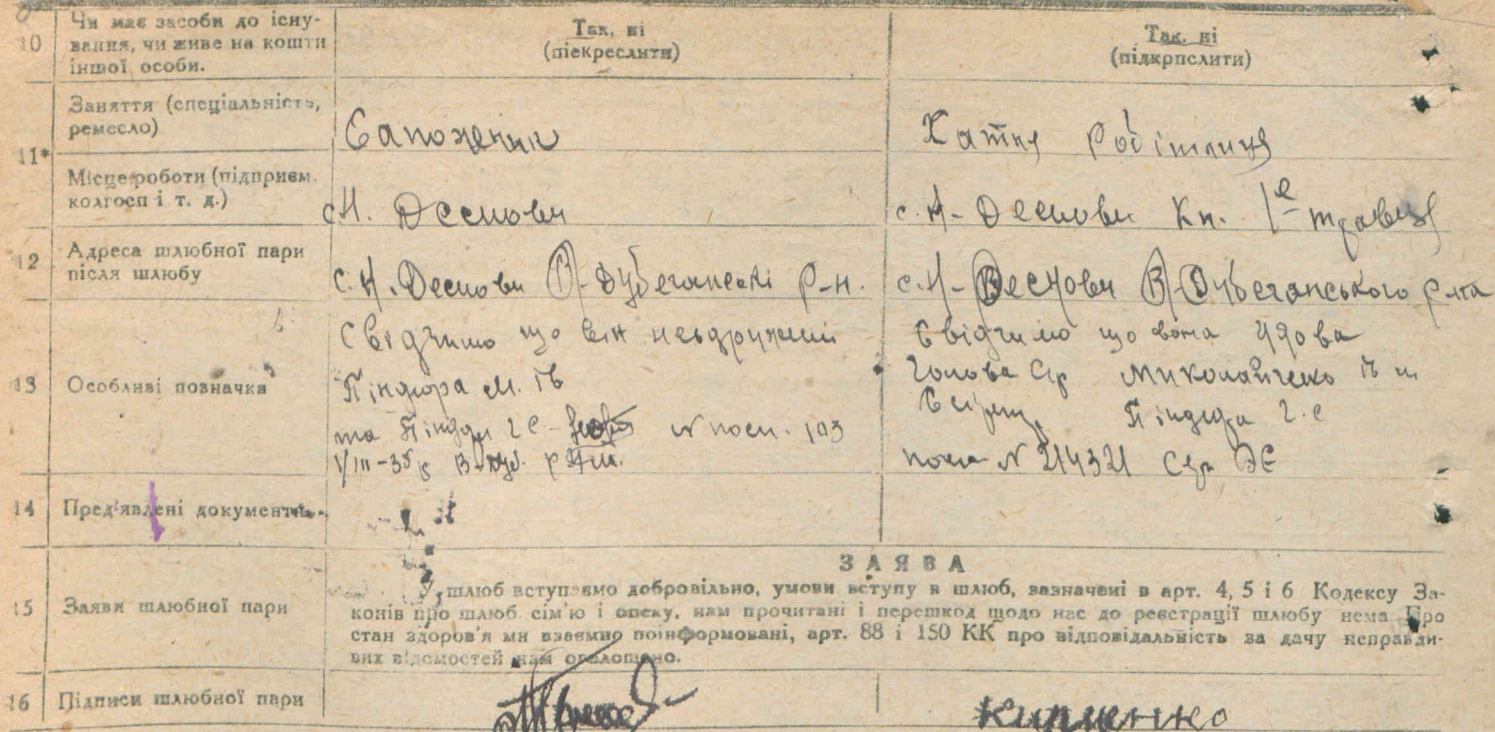 10 Чи має засоби до існу-
вання, чи живе на кошти
іншої особи.
Так, ні
(піекреслити)
Так, ні
(підкрпслити)
11* Заняття (спеціальність,
ремесло)
Сапожник
Хатня робітниця
Місце роботи (підприєм.
колгосп і т. д.)
с. Н. Десновн
с. Н- Десновн Кп. 1е травня
12 Адреса шлюбної пари
після шлюбу
с. Н. Десновн В-Дубечанські р-н.
с. Н- Десновн В-Дубечанського р-на
13 Особливі позначка
Свідчимо що він неодружений
Піндюра М. Ів
та 2 С- № посв. 103
1/III-35 р В-Дуб.
Свідчимо що вона удова
Голова С/р Миколайченко
2. С
№ 214321 Сер ЭЄ
14 Пред'явлені документи
15 Заяви шлюбної пари
ЗАЯВА
У шлюб вступаємо добровільно, умови вступу в шлюб, зазначені в арт. 4, 5 і 6 Кодексу За-
конів про шлюб. сім'ю і опеку, нам прочитані і перешкод щодо нас до реєстрації шлюбу нема Про
стан здоров'я ми взаємно поінформовані, арт. 88 і 150 КК про відповідальність за дачу неправди-
вих відомостей нам оголошено.
16 Підписи шлюбної пари